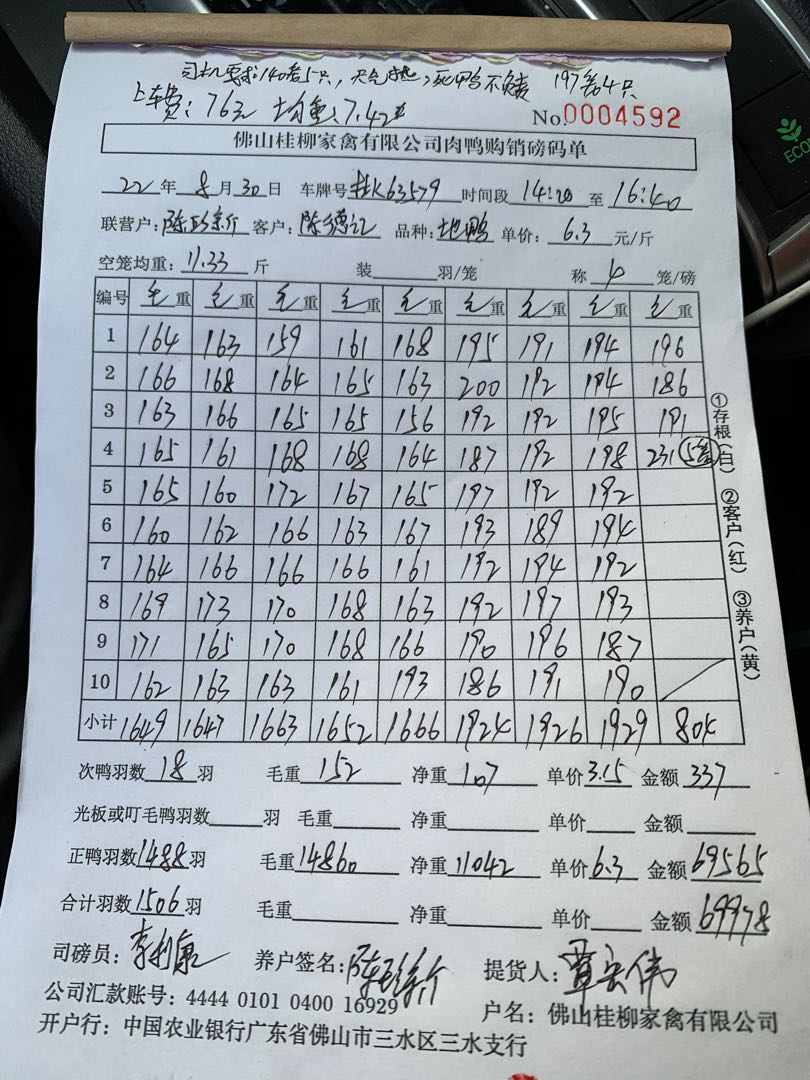 司机要求140卷5只，天气热，死鸭不赔 197卷4只
上车费：76元 均重：7.42#
No.0004592
佛山桂柳家禽有限公司肉鸭购销磅码单
22年8月30日 车牌号桂K63579 时间段14:20至16:40
联营户： 客户：陈德记 品种：地鸭 单价：6.3元/斤
空笼均重：11.33斤 装 羽/笼 称4笼/磅
编号 毛重 毛重 毛重 毛重 毛重 毛重 毛重 毛重 毛重
1 164 163 159 161 168 195 191 194 196
2 166 168 164 165 163 200 192 194 186
3 163 166 165 165 156 192 192 195 191
4 165 161 168 168 164 187 192 198 231
5 165 160 172 167 165 197 192 192
6 160 162 166 163 167 193 189 194
7 164 166 166 166 161 192 194 192
8 169 173 170 168 163 192 197 193
9 171 165 170 168 166 190 196 187
10 162 163 163 161 193 186 191 190
小计 1649 1647 1663 1652 1666 1924 1926 1929 804
次鸭羽数18羽 毛重152 净重107 单价3.15 金额337
光板或叮毛鸭羽数 羽 毛重 净重 单价 金额
正鸭羽数1488羽 毛重14860 净重11042 单价6.3 金额69565
合计羽数1506羽 毛重 净重 单价 金额69978
司磅员：李利康 养户签名： 提货人：覃宏伟
公司汇款账号：4444 0101 0400 16929 户名：佛山桂柳家禽有限公司
开户行：中国农业银行广东省佛山市三水区三水支行
①存根(白) ②客户(红) ③养户(黄)
ECO